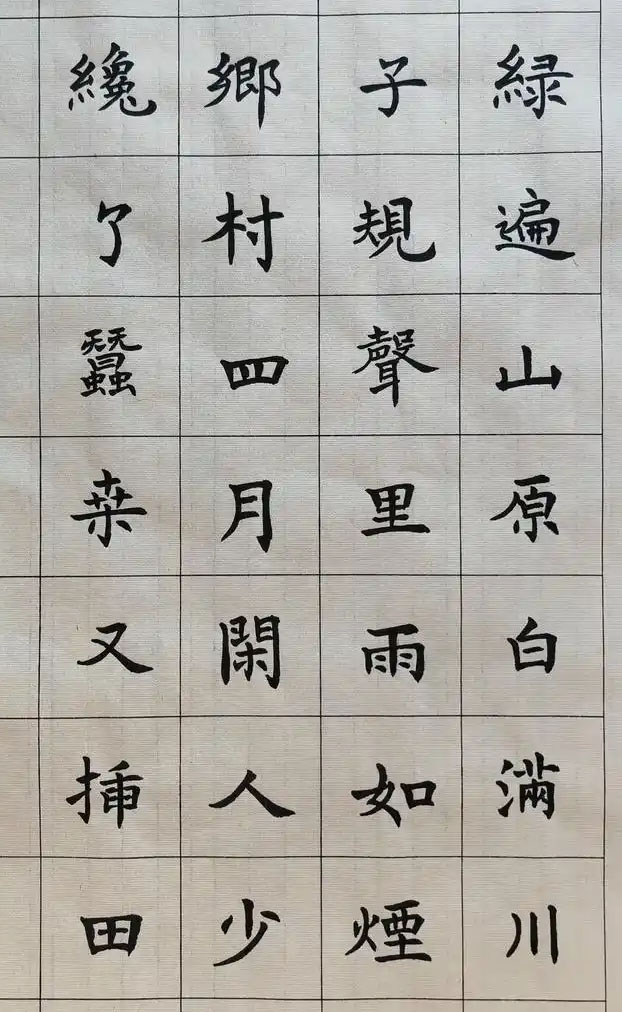 緑遍山原白滿川
子規聲里雨如煙
鄉村四月閑人少
纔了蠶桒又揷田